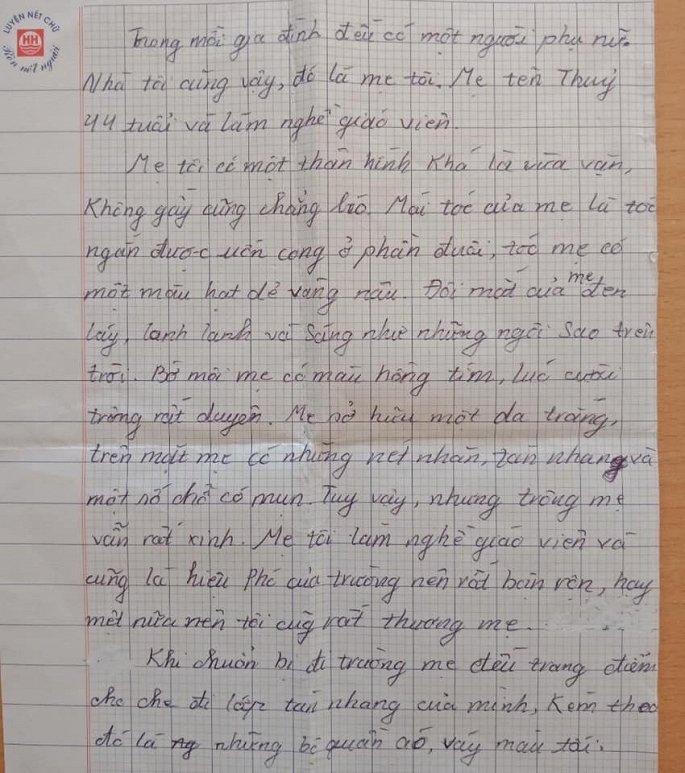 LUYỆN NÉT CHỮ
HH
Rèn nết người
Trong mỗi gia đình đều có một người phụ nữ.
Nhà tôi cũng vậy, đó là mẹ tôi. Mẹ tên Thuỷ
44 tuổi và làm nghề giáo viên.
Mẹ tôi có một thân hình khá là vừa vặn,
Không gầy cũng chẳng béo. Mái tóc của mẹ là tóc
ngắn được uốn cong ở phần đuôi, tóc mẹ có
một màu hạt dẻ vàng nâu. Đôi mắt của mẹ đen
láy, lanh lanh và sáng như những ngôi sao trên
trời. Bờ môi mẹ có màu hồng tím, lúc cười
trông rất duyên. Mẹ sở hữu một da trắng,
trên mặt mẹ có những nét nhăn, tàn nhang và
một số chỗ có mụn. Tuy vậy, nhưng trông mẹ
vẫn rất xinh. Mẹ tôi làm nghề giáo viên và
cũng là hiệu phó của trường nên rất bận rện, hay
mệt nữa nên tôi cũg rất thương mẹ.
Khi chuẩn bị đi trường mẹ đều trang điểm
cho che đi lớp tàn nhang của mình, kèm theo
đó là ng những bộ quần áo, váy màu tối.